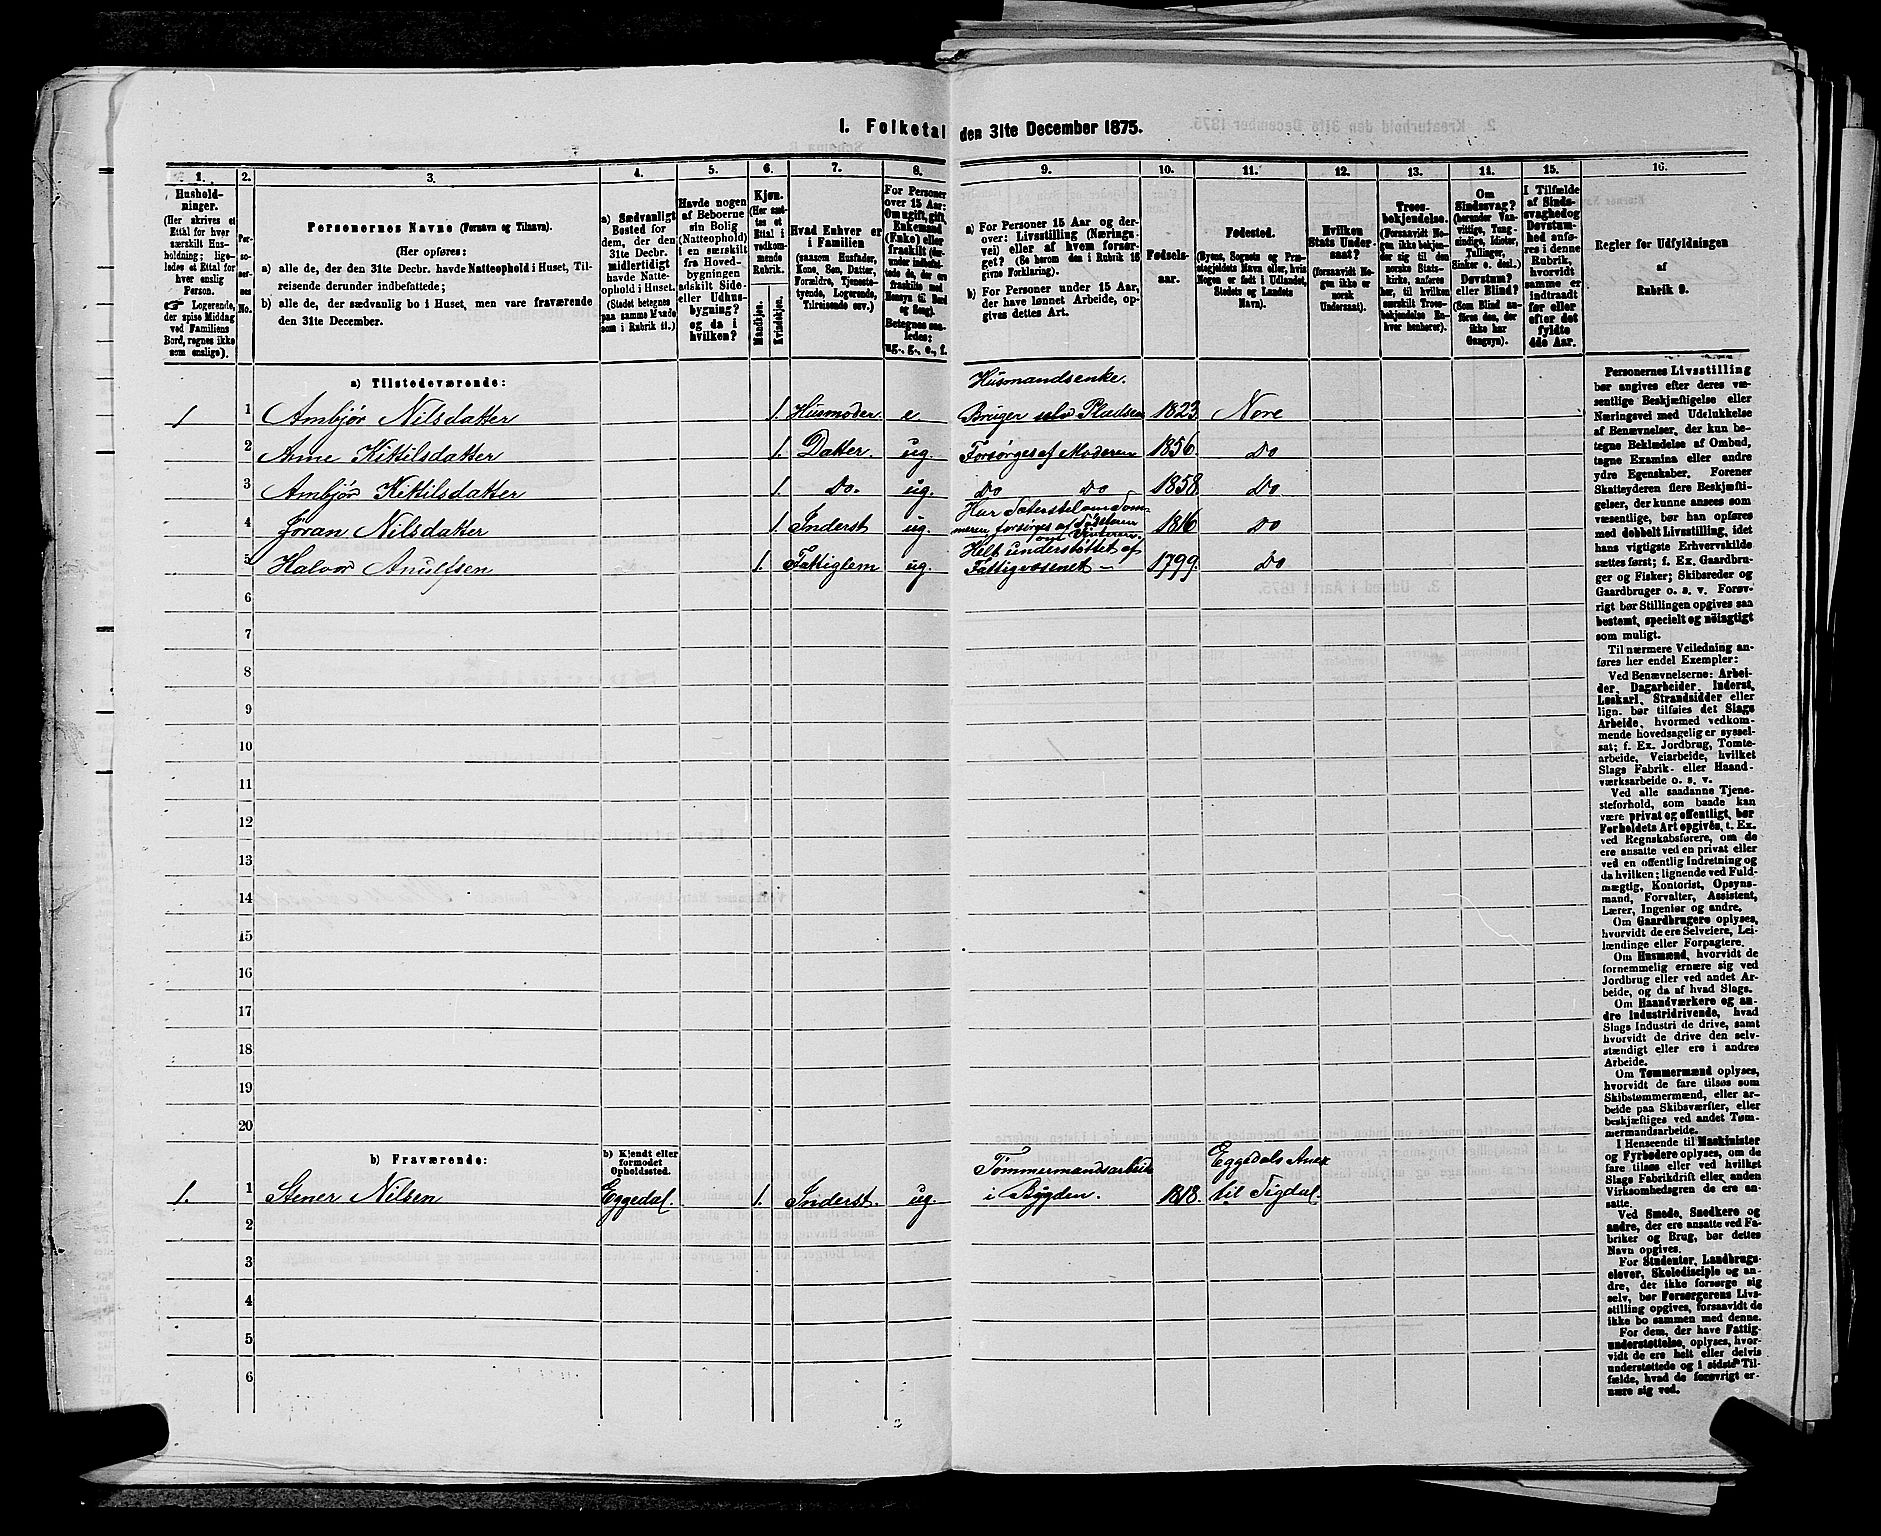 1. Folketal den 31te December 1875.
1. 2. 3. 4. 5. 6. 7. 8. 9. 10. 11. 12. 13. 14. 15. 16.
Hushold-
ninger.
(Her skrives et
Ettal for hver
særskilt Hus-
holdning; lige-
ledes et Ettal for
hver enslig
Person.
☞ Logerende,
der spise Middag
ved Familiens
Bord, regnes ikke
som enslige).
Per-
soner-
nes
No.
Personernes Navne (Fornavn og Tilnavn).
(Her opføres:
a) alle de, der den 31te Decbr. havde Natteophold i Huset, Til-
reisende derunder indbefattede;
b) alle de, der sædvanlig bo i Huset, men vare fraværende
den 31te December.
a) Sædvanligt
Bosted for
dem, der den
31te Decbr.
midlertidigt
havde Natte-
ophold i Huset.
(Stedet betegnes
paa samme Maade
som i Rubrik 11.)
Havde nogen
af Beboerne
sin Bolig
(Natteophold)
i en særskilt
fra Hoved-
bygningen
adskilt Side-
eller Udhus-
bygning?
og da i
hvilken?
Kjøn.
(Her sæt-
tes et
Ettal i
vedkom-
mende
Rubrik.
Mandkjøn.
Kvindekjøn.
Hvad Enhver er
i Familien
(saasom Husfader,
Kone, Søn, Datter,
Forældre, Tjeneste-
tyende, Logerende,
Tilreisende osv.)
For Personer
over 15 Aar:
Om ugift, gift,
Enkemand
(Enke) eller
fraskilt
Betegnes saa-
ledes:
ug., g., e., f.
a) For Personer 15 Aar og der-
over: Livsstilling (Nærings-
vei) eller af hvem forsør-
get? (Se herom den i Rubrik 16
givne Forklaring).
b) For Personer under 15 Aar,
der have lønnet Arbeide, op-
gives dettes Art.
Fødsels-
aar.
Fødested.
(Byens, Sognets og Præ-
stegjeldets Navn eller, hvis
Nogen er født i Udlandet,
Stedets og Landets
Navn).
Hvilken
Stats Under-
saat?
(forsaavidt No-
gen ikke er
norsk
Undersaat).
Troes-
bekjendelse.
(Forsaavidt No-
gen ikke bekjen-
der sig til den
norske Stats-
kirke, anføres
her, til hvilken
særskilt Troes-
bekjendelse En-
hver henhører).
Om
Sindssvag?
(herunder Van-
vittige, Tung-
sindige, Idioter,
Tullinger,
Sinker o. desl.)
Døvstum?
eller Blind?
(Som Blind an-
føres den, der
ikke har
Gangsyn).
I Tilfælde
af Sinds-
svaghed og
Døvstum-
hed anfø-
res i denne
Rubrik,
hvorvidt
samme er
indtraadt
før eller
efter det
fyldte
4de Aar.
Regler for Udfyldningen
af
Rubrik 9.
a) Tilstedeværende:
Husmandsenke.
1 1 Ambjør Nilsdatter 1. Husmoder e Bruger selv Pladsen 1823 Nore
2 Anne Kittilsdatter 1. Datter. ug. Forsørges af Moderen 1856. Do
3 Ambjør Kittilsdatter 1. Do. ug. Do Do 1858. Do
Har Sæterstel om Som-
4 Jøran Nilsdatter 1. Inderst ug. meren, forsørges af Søsteren 1816 Do
om Vinteren.
Helt understøttet af
5 Halvor Anulfsen 1. Fattiglem ug. Fattigvæsenet - 1799. Do
6
7
8
9
10
11
12
13
14
15
16
17
18
19
20
b) Fraværende:
b) Kjendt eller
formodet
Opholdssted.
Tømmermandsarbeide Eggedals Anex
1. 1 Stener Nilsen Eggedal. 1. Inderst. ug. i Bygden. 1818. til Sigdal.
2
3
4
5
6
Personernes Livsstilling
bør angives efter deres væ-
sentlige Beskjæftigelse eller
Næringsvei med Udelukkelse
af Benævnelser, der kun be-
tegne Beklædelse af Ombud,
tagne Examina eller andre
ydre Egenskaber. Forener
Skatteyderen flere Beskjæfti-
gelser, der kunne ansees som
væsentlige, bør han opføres
med dobbelt Livsstilling, idet
hans vigtigste Erhvervskilde
sættes først; f. Ex. Gaardbru-
ger og Fisker; Skibsreder og
Gaardbruger o. s. v. Forøv-
rigt bør Stillingen opgives saa
bestemt, specielt og nøiagtigt
som muligt.
Til nærmere Veiledning an-
føres her endel Exempler:
Ved Benævnelserne: Arbei-
der, Dagarbeider, Inderst,
Løskarl, Strandsidder eller
lign. bør tilføies det Slags
Arbeide, hvormed vedkom-
mende hovedsagelig er syssel-
sat; f. Ex. Jordbrug, Tomte-
arbeide, Veiarbeide, hvilket
Slags Fabrik- eller Haand-
værksarbeide o. s. v.
Ved alle saadanne Tjene-
steforhold, som baade kan
være privat og offentligt, bør
Forholdets Art opgives, t. Ex.
ved Regnskabsførere, om de
ere ansatte ved en privat eller
ved en offentlig Indretning og
da hvilken; lignende ved Fuld-
mægtig, Kontorist, Opsyns-
mand, Forvalter, Assistent,
Lærer, Ingeniør og andre.
Om Gaardbrugere oplyses,
hvorvidt de ere Selveiere, Lei-
lændinge eller Forpagtere.
Om Husmænd, hvorvidt de
fornemmelig ernære sig ved
Jordbrug eller ved andet Ar-
beide, og da af hvad Slags.
Om Haandværkere og an-
dre industridrivende, hvad
Slags Industri de drive, samt
hvorvidt de drive den selv-
stændigt eller ere i andres
Arbeide.
Om Tømmermænd oplyses,
hvorvidt de fare tilsøs som
Skibstømmermænd, eller ar-
beide paa Skibsværfter, eller
beskjæftiges ved andet Tøm-
mermandsarbeide.
I Henseende til Maskinister
og Fyrbødere oplyses, om de
fare tilsøs eller ved hvilket
Slags Fabrikdrift eller anden
Virksomhedsgren de ere an-
satte.
Ved Smede, Snedkere og
andre, der ere ansatte ved Fa-
briker og Brug, bør dettes
Navn opgives.
For Studenter, Landbrugs-
elever, Skoledisciple og an-
dre, der ikke forsørge sig
selv, bør Forsørgerens Livs-
stilling opgives, forsaavidt de
ikke bo sammen med denne.
For dem, der have Fattig-
understøttelse, oplyses, hvor-
vidt de ere helt eller delvis
understøttede og i sidste Til-
fælde, hvad de forøvrigt er-
nære sig ved.